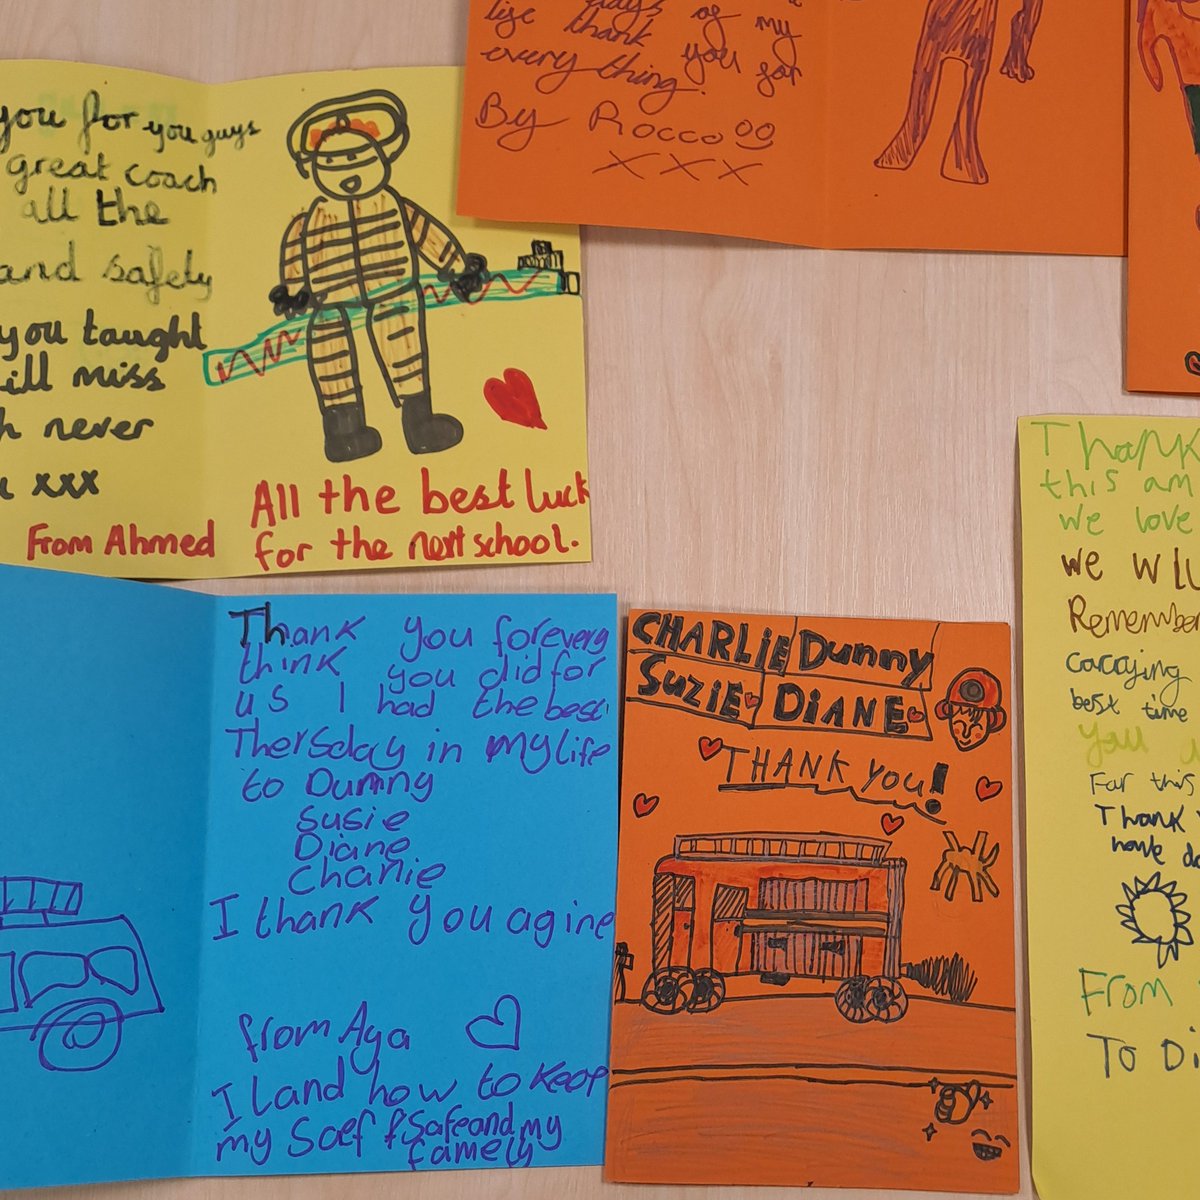 you for you guys
great coach
all the
and safely
you taught
ill miss
never
xxx
From Ahmed
All the best luck
for the next school.
days of
life thank of my
every thing! you for
By Rocco
xxx
Thank
this am
we love
we Will
Remember
carrying
best time
you
For this
Thank
have
From
To Di
Thank you forevery
think you did for
us I had the best
Thersday in my life
to Dunny
Susie
Diane
Charlie
I thank you agine
from Aya
I land how to keep
my Saef f Safe and my
famely
CHARLIE Dunny
Suzie DIANE
THANK YOU!